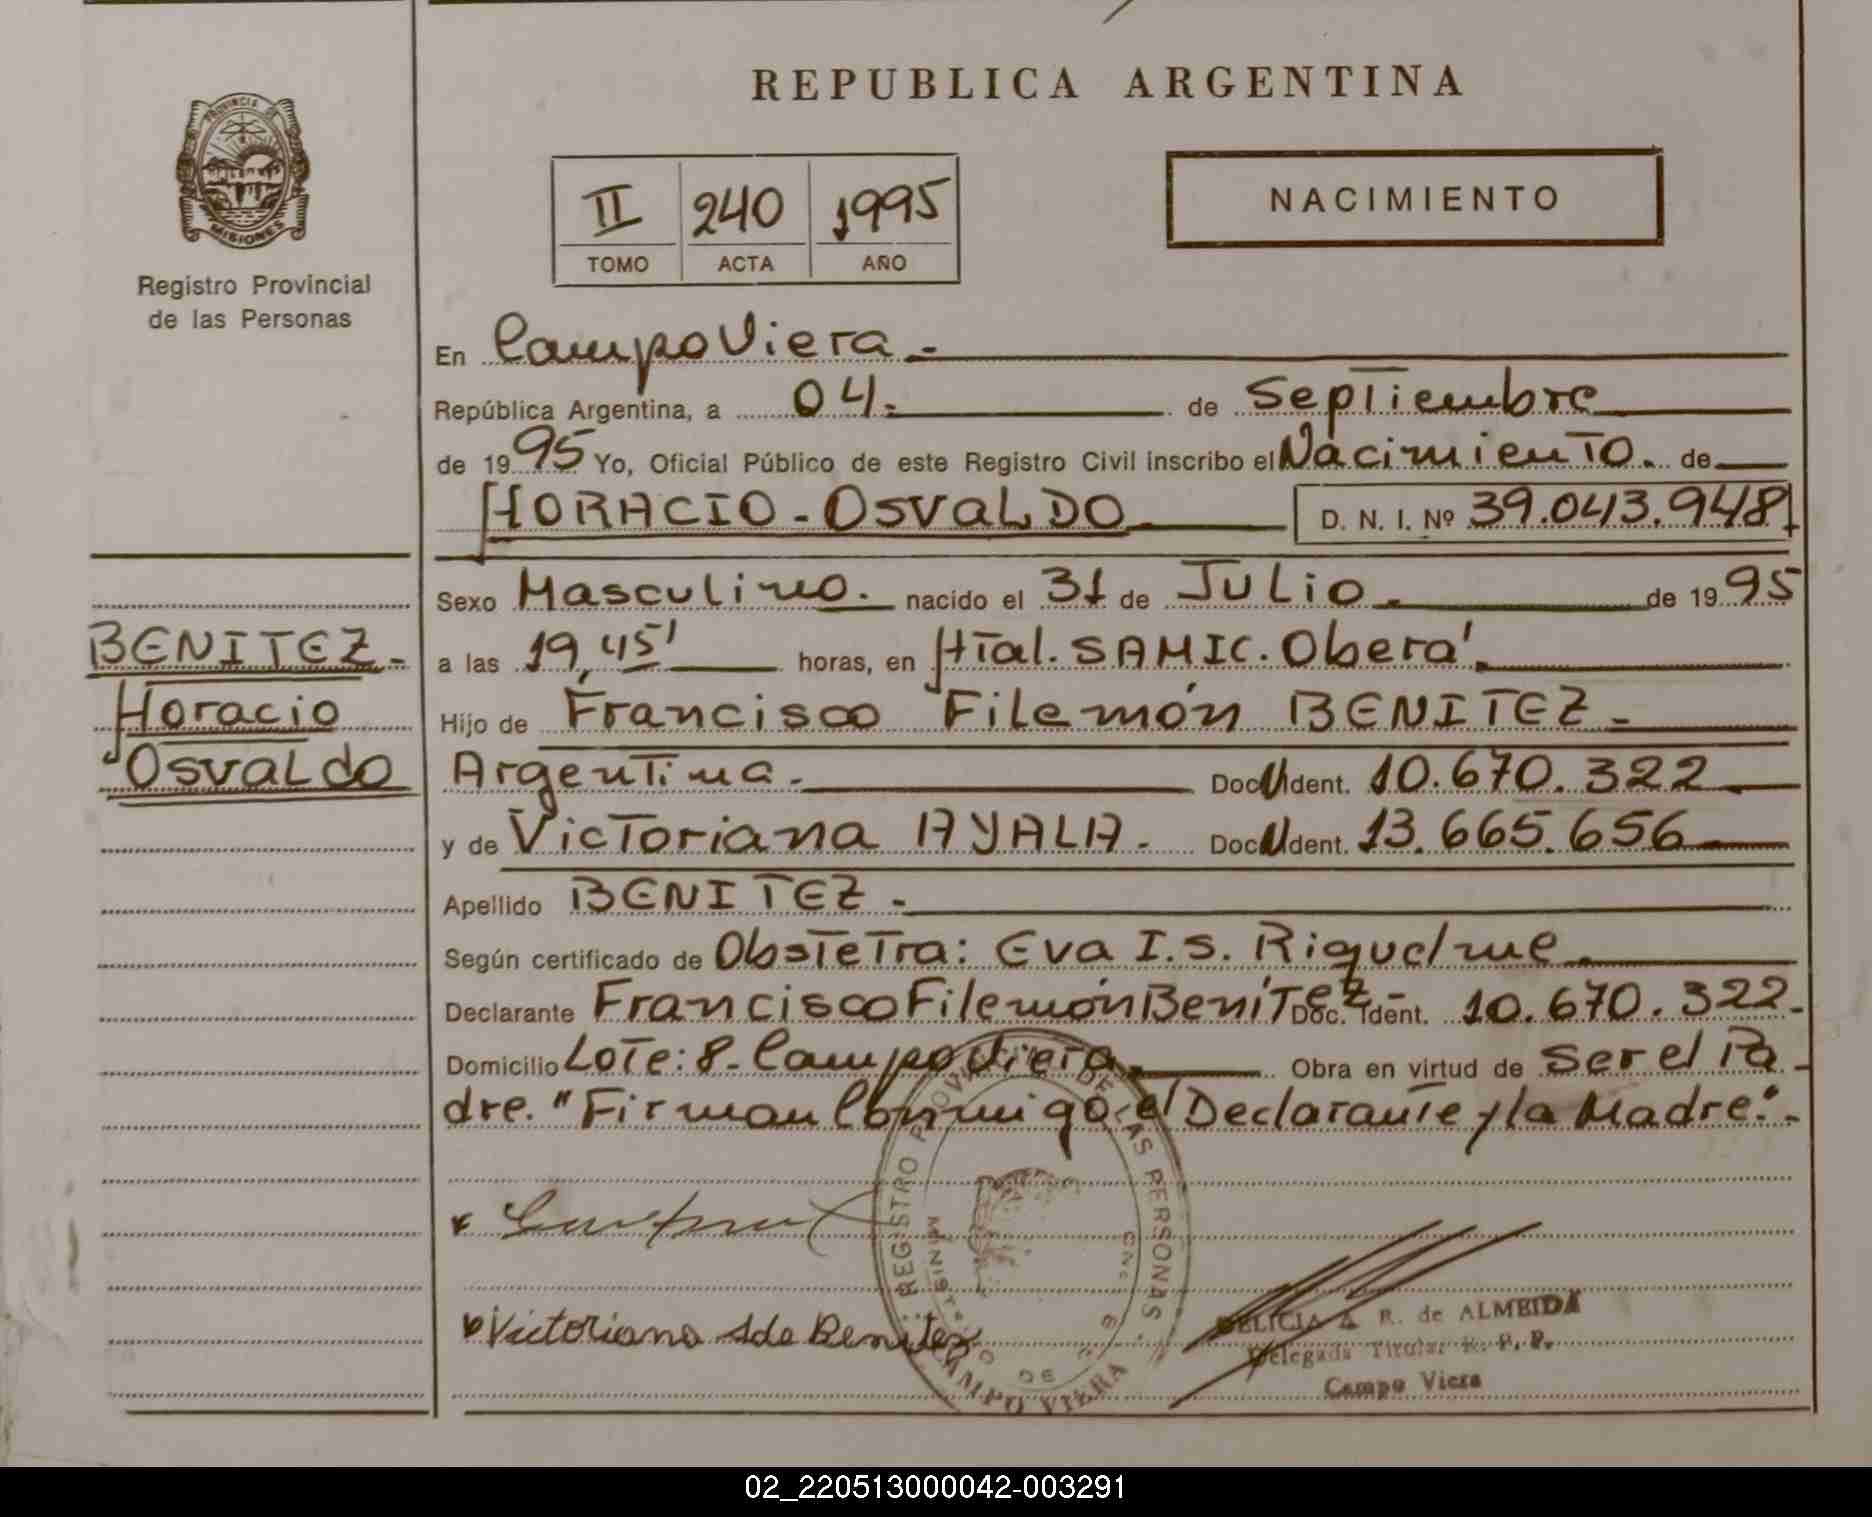 REPUBLICA ARGENTINA
PROVINCIA DE
MISIONES
Registro Provincial
de las Personas
II 240 1995
TOMO ACTA AÑO
NACIMIENTO
En Campo Viera.-
República Argentina, a 04.- de Septiembre
de 1995 Yo, Oficial Público de este Registro Civil inscribo el Nacimiento. de
HORACIO-OSVALDO D. N. I. Nº 39.043.948
Sexo Masculino. nacido el 31 de Julio. de 1995
a las 19,45' horas, en Htal. SAMIC. Oberá.
Hijo de Francisco Filemón BENITEZ.-
Argentina. Doc. N Ident. 10.670.322
y de Victoriana AYALA.- Doc. N Ident. 13.665.656
Apellido BENITEZ.-
Según certificado de Obstetra: Eva I.S. Riquelme.
Declarante Francisco Filemón Benítez- Doc. Ident. 10.670.322.-
Domicilio Lote: 8- Campo Viera. Obra en virtud de ser el Pa-
dre. "Firman Conmigo el Declarante y la Madre".-
BENITEZ.-
Horacio
Osvaldo
Victoriana A de Benitez
REGISTRO PROVINCIAL DE LAS PERSONAS
CAMPO VIERA
DELICIA A R. de ALMEIDA
Delegada Titular R. P. P.
Campo Viera
02_220513000042-003291